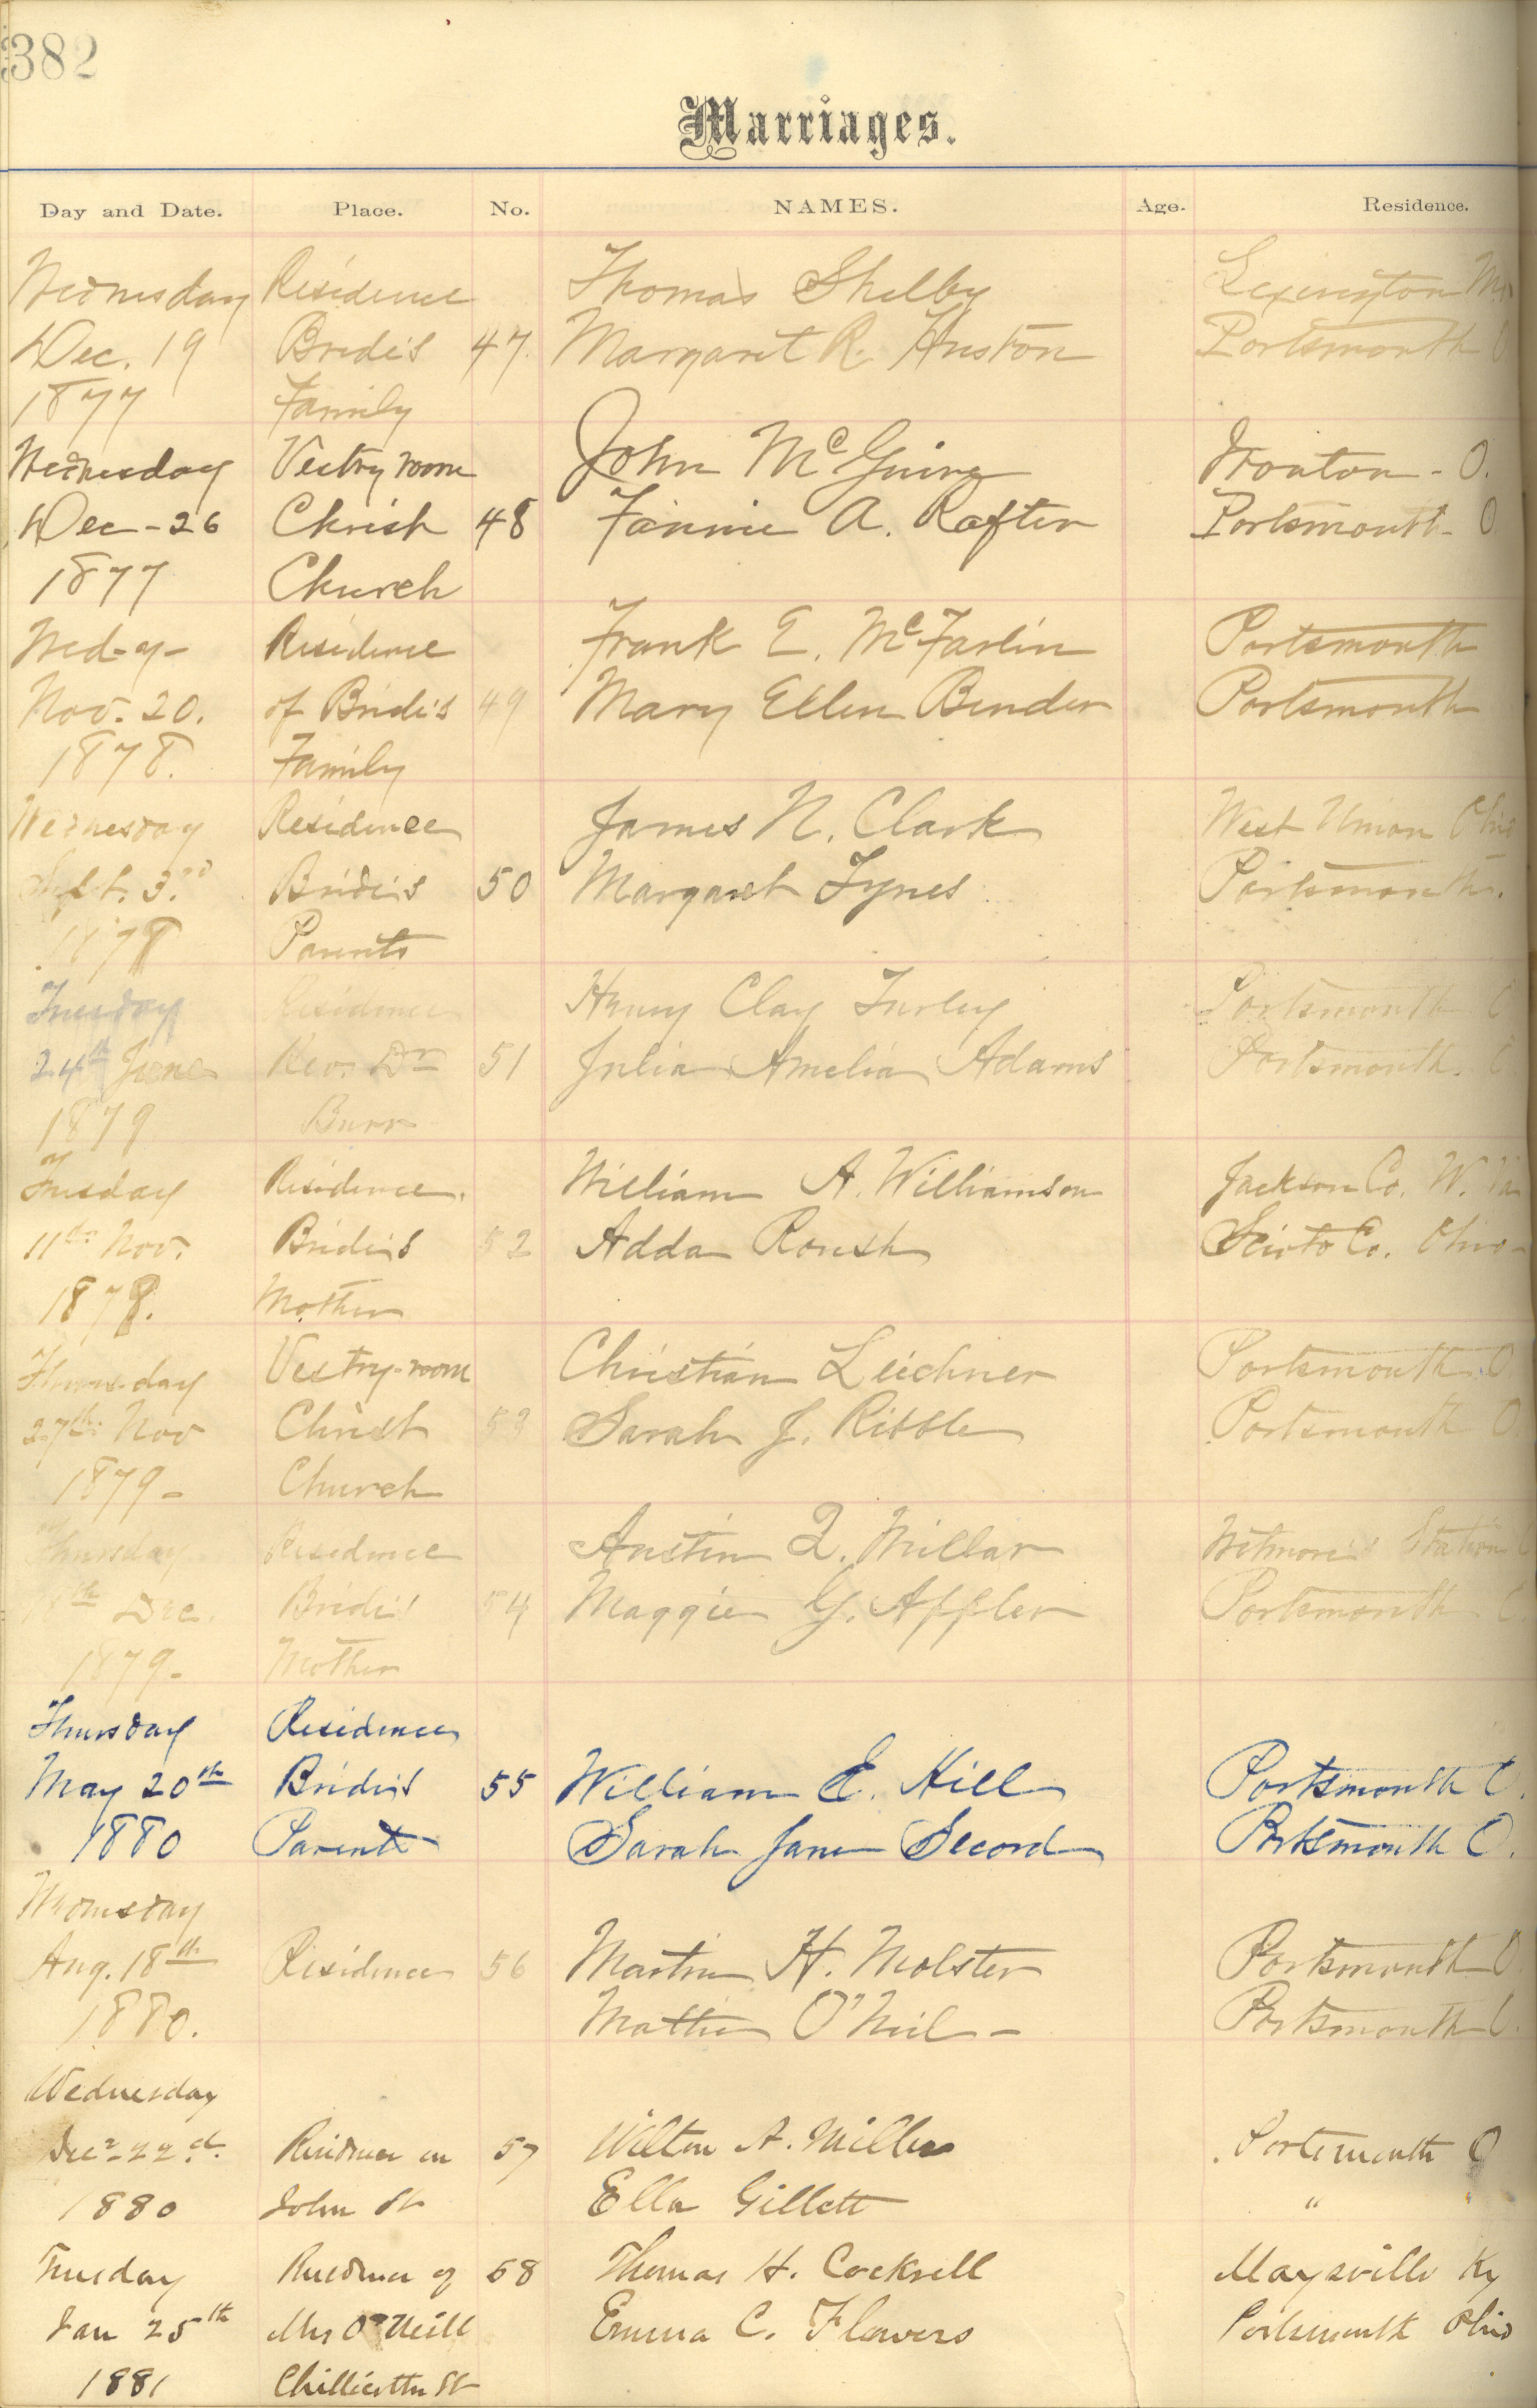 382
Marriages.
Day and Date. Place. No. NAMES. Age. Residence.
Wednesday Residence Thomas Shelby Lexington
Dec. 19 Bride's 47. Margaret R. Huston Portsmouth
1877 Family
Wednesday Vestry room John McGuire Ironton - O.
Dec - 26 Christ 48 Fannie A. Rafter Portsmouth - O
1877 Church
Wed-y- Residence Frank E. McFarlin Portsmouth
Nov. 20. of Bride's 49 Mary Ellen Bender Portsmouth
1878. Family
Wednesday Residence James N. Clark West Union Ohio
3rd Bride's 50 Margaret Tynes Portsmouth.
1878 Parents
Tuesday Residence Henry Clay Turley Portsmouth O
24th June Rev. Dr 51 Julia Amelia Adams Portsmouth. O
1879 Burr
Tuesday Residence. William A. Williamson Jackson Co. W. Va
11th Nov. Bride's 52 Adda Roush Scioto Co. Ohio -
1879. Mother
Thursday Vestry-room Christian Leichner Portsmouth. O.
27th Nov Christ 53 Sarah J. Ribble Portsmouth O.
1879 - Church
Thursday Residence Austin Q. Millar Station
Dec. Bride's 54 Maggie G. Appler Portsmouth O.
1879 - Mother
Thursday Residence
May 20th Bride's 55 William E. Hill Portsmouth O.
1880 Parents Sarah Jane Secord Portsmouth O.
Wednesday
Aug. 18th Residence 56 Martin H. Molster Portsmouth O.
1880. Mattie O'Neil - Portsmouth O.
Wednesday
Dec 22d. Residence on 57 Wilton A. Miller Portsmouth O
1880 John St Ella Gillett "
Tuesday Residence of 58 Thomas H. Cockrell Maysville Ky
Jan 25th Mrs O'Neill Emma C. Flowers Portsmouth Ohio
1881 Chillicothe St